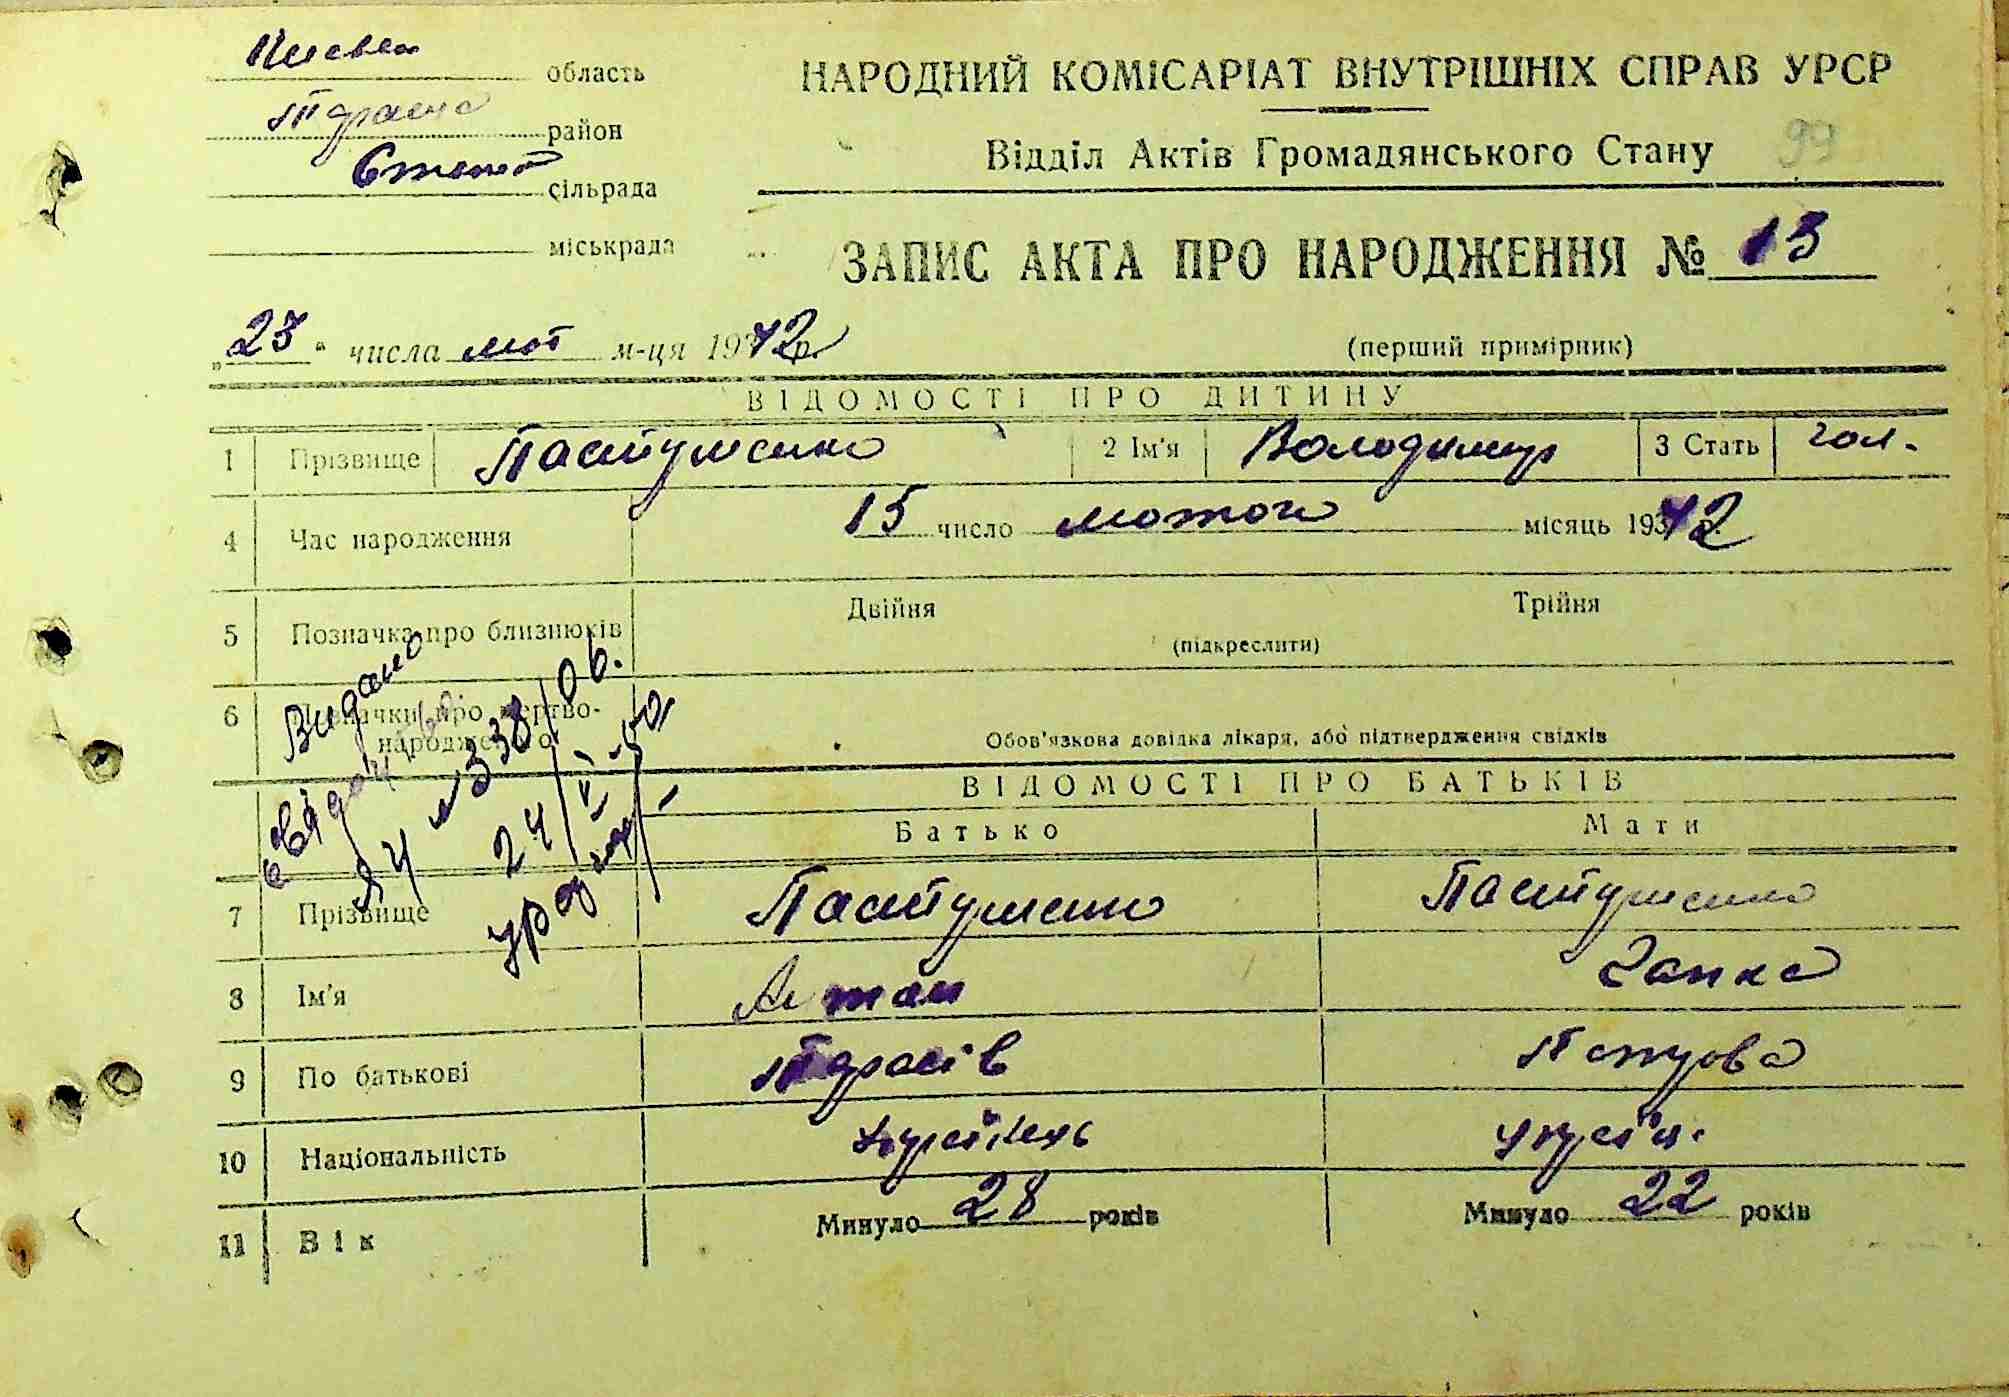 Київськ область
район
сільрада
міськрада
НАРОДНИЙ КОМІСАРІАТ ВНУТРІШНІХ СПРАВ УРСР
Відділ Актів Громадянського Стану 99
ЗАПИС АКТА ПРО НАРОДЖЕННЯ № 13
(перший примірник)
„23“ числа лют м-ця 1942р.
ВІДОМОСТІ ПРО ДИТИНУ
1 Прізвище Пастушенко 2 Ім'я Володимир 3 Стать чол.
4 Час народження 15 число лютого місяць 1942
5 Позначка про близнюків Двійня Трійня
(підкреслити)
6 Позначки про мертво-
народженого Обов'язкова довідка лікаря, або підтвердження свідків
Видано
ЯЧ № 33806.
24/VI-50
ВІДОМОСТІ ПРО БАТЬКІВ
Батько Мати
7 Прізвище Пастушенко Пастушенко
8 Ім'я Антон Ганна
9 По батькові Тарасів Петрова
10 Національність українець україн.
11 Вік Минуло 28 років Минуло 22 років